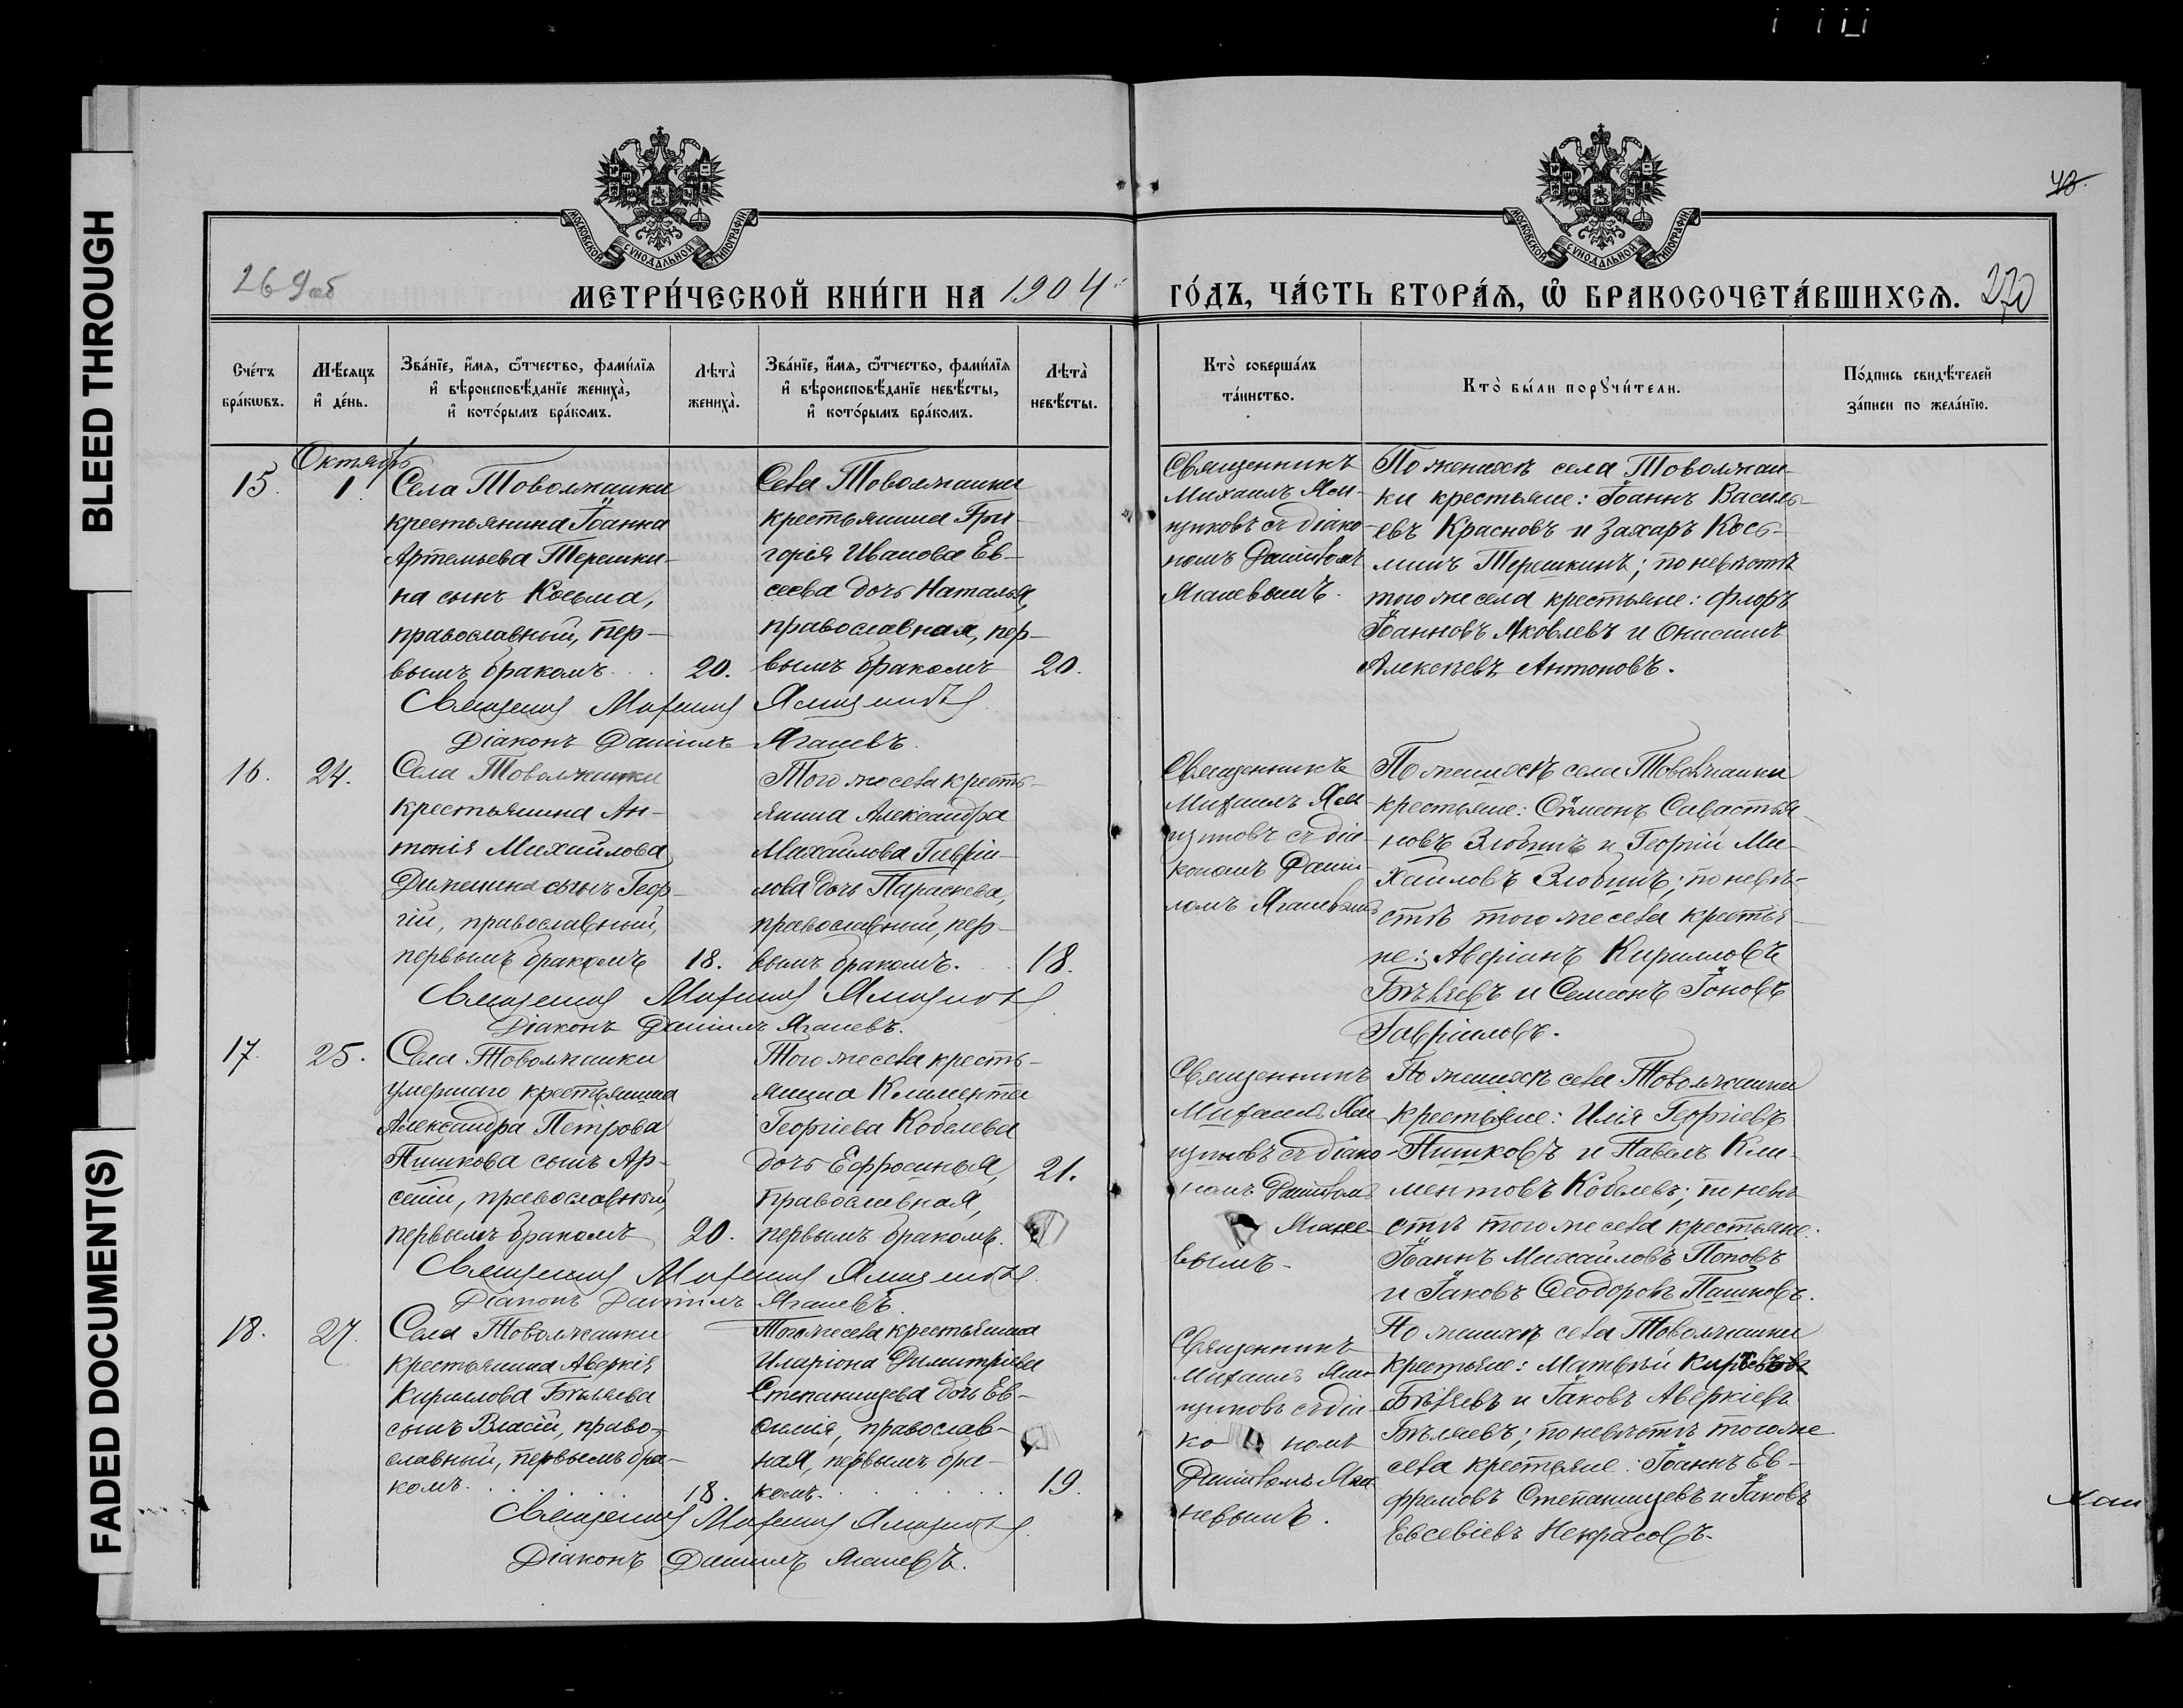 BLEED THROUGH
FADED DOCUMENT(S)
МОСКОВСКОЙ СѴНОДАЛЬНОЙ ТИПОГРАФІИ
МОСКОВСКОЙ СѴНОДАЛЬНОЙ ТИПОГРАФІИ
269об
МЕТРИ́ЧЕСКОЙ КНИ́ГИ НА 1904
ГО́ДЪ, ЧА́СТЬ ВТОРА́Ѧ, Ѿ БРАКОСОЧЕТА́ВШИХСѦ.
270
Сче́тъ бра́кѡвъ.
Мѣ́сяцъ и҆ де́нь.
Зва́нїе, и҆́мѧ, ѻ҆́тчество, фами́лїѧ и҆ вѣроисповѣ́данїе жениха̀, и҆ кото́рымъ бра́комъ.
Лѣта̀ жениха̀.
Зва́нїе, и҆́мѧ, ѻ҆́тчество, фами́лїѧ и҆ вѣроисповѣ́данїе невѣ́сты, и҆ кото́рымъ бра́комъ.
Лѣта̀ невѣ́сты.
Кто̀ соверша́лъ та́инство.
Кто̀ бы́ли порꙋчи́тели.
По́дпись свидѣ́телей за́писи по жела́нїю.
Октябрь
15.
1.
Села Товолжанки
крестьянина Іоанна
Артемьева Терешки-
на сынъ Косьма,
православный, пер-
вымъ бракомъ
20.
Села Товолжанки
крестьянина Гри-
горія Иванова Ев-
сеева дочь Наталья,
православная, пер-
вымъ бракомъ
20.
Священникъ
Михаилъ
съ діако-
номъ Даніиломъ
По женихѣ села Товолжан-
ки крестьяне: Іоаннъ Василь-
евъ Красновъ и Захаръ Кось-
минъ Терешкинъ; по невѣстѣ
того же села крестьяне: Флоръ
Іоанновъ Яковлевъ и Онисимъ
Алексѣевъ Антоновъ.
Священникъ Михаилъ
Діаконъ Даніилъ
16.
24.
Села Товолжанки
крестьянина Ан-
тонія Михайлова
сынъ Геор-
гій, православный,
первымъ бракомъ
18.
Того же села кресть-
янина Александра
Михайлова Гавріи-
лова дочь Параскева,
православный, пер-
вымъ бракомъ.
18.
Священникъ
Михаилъ
съ діа-
кономъ Даніи-
ломъ
По женихѣ села Товолжанки
крестьяне: Сѵмеонъ Савастья-
новъ Злобинъ и Георгій Ми-
хаиловъ Злобинъ; по невѣ-
стѣ того же села крестья-
не: Аверіанъ Кирилловъ
Бѣляевъ и Семеонъ Іоновъ
Гавріиловъ.
Священникъ Михаилъ
Діаконъ Даніилъ
17.
25.
Села Товолжанки
умершаго крестьянина
Александра Петрова
Пашкова сынъ Ар-
сеній, православный,
первымъ бракомъ
20.
Того же села кресть-
янина Климента
Георгіева Кобелева
дочь Ефросинья,
православная,
первымъ бракомъ.
21.
Священникъ
Михаилъ
съ діако-
номъ Даніиломъ
вымъ
По женихѣ села Товолжанки
крестьяне: Илія Георгіевъ
Пашковъ и Павелъ Кли-
ментовъ Кобелевъ; по невѣ-
стѣ того же села крестьяне:
Іоаннъ Михаиловъ Поповъ
и Іаковъ Ѳеодоровъ Пашковъ.
Священникъ Михаилъ
Діаконъ Даніилъ
18.
27.
Села Товолжанки
крестьянина Аверкія
Кирилова Бѣляева
сынъ Власій, право-
славный, первымъ бра-
комъ.
18.
Того же села крестьянина
Иларіона Димитріева
Степанищева дочь Ев-
ѳимія, православ-
ная, первымъ бра-
комъ.
19.
Священникъ
Михаилъ
съ діа-
кономъ
Даніиломъ
По женихѣ села Товолжанки
крестьяне: Матѳей
Бѣляевъ и Іаковъ Аверкіевъ
Бѣляевъ; по невѣстѣ того же
села крестьяне: Іоаннъ Ев-
фремовъ Степанищевъ и Іаковъ
Евсевіевъ Некрасовъ.
Священникъ Михаилъ
Діаконъ Даніилъ